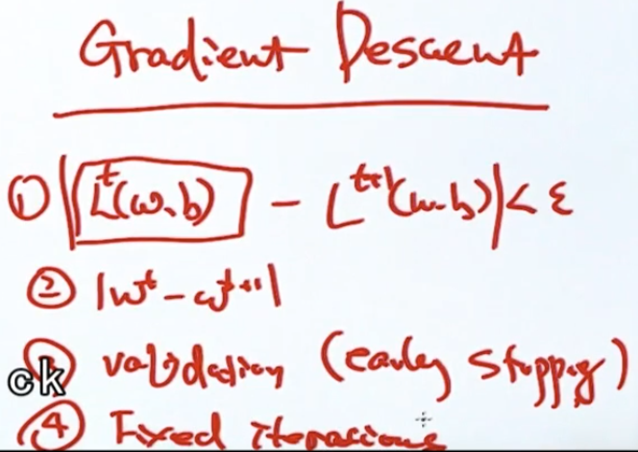 Gradient Descent
① |L^t(w.b) - L^{t+1}(w.b)| < ε
② |w^t - w^{t+1}|
③ validation (early stopping)
ck
④ Fixed iterations